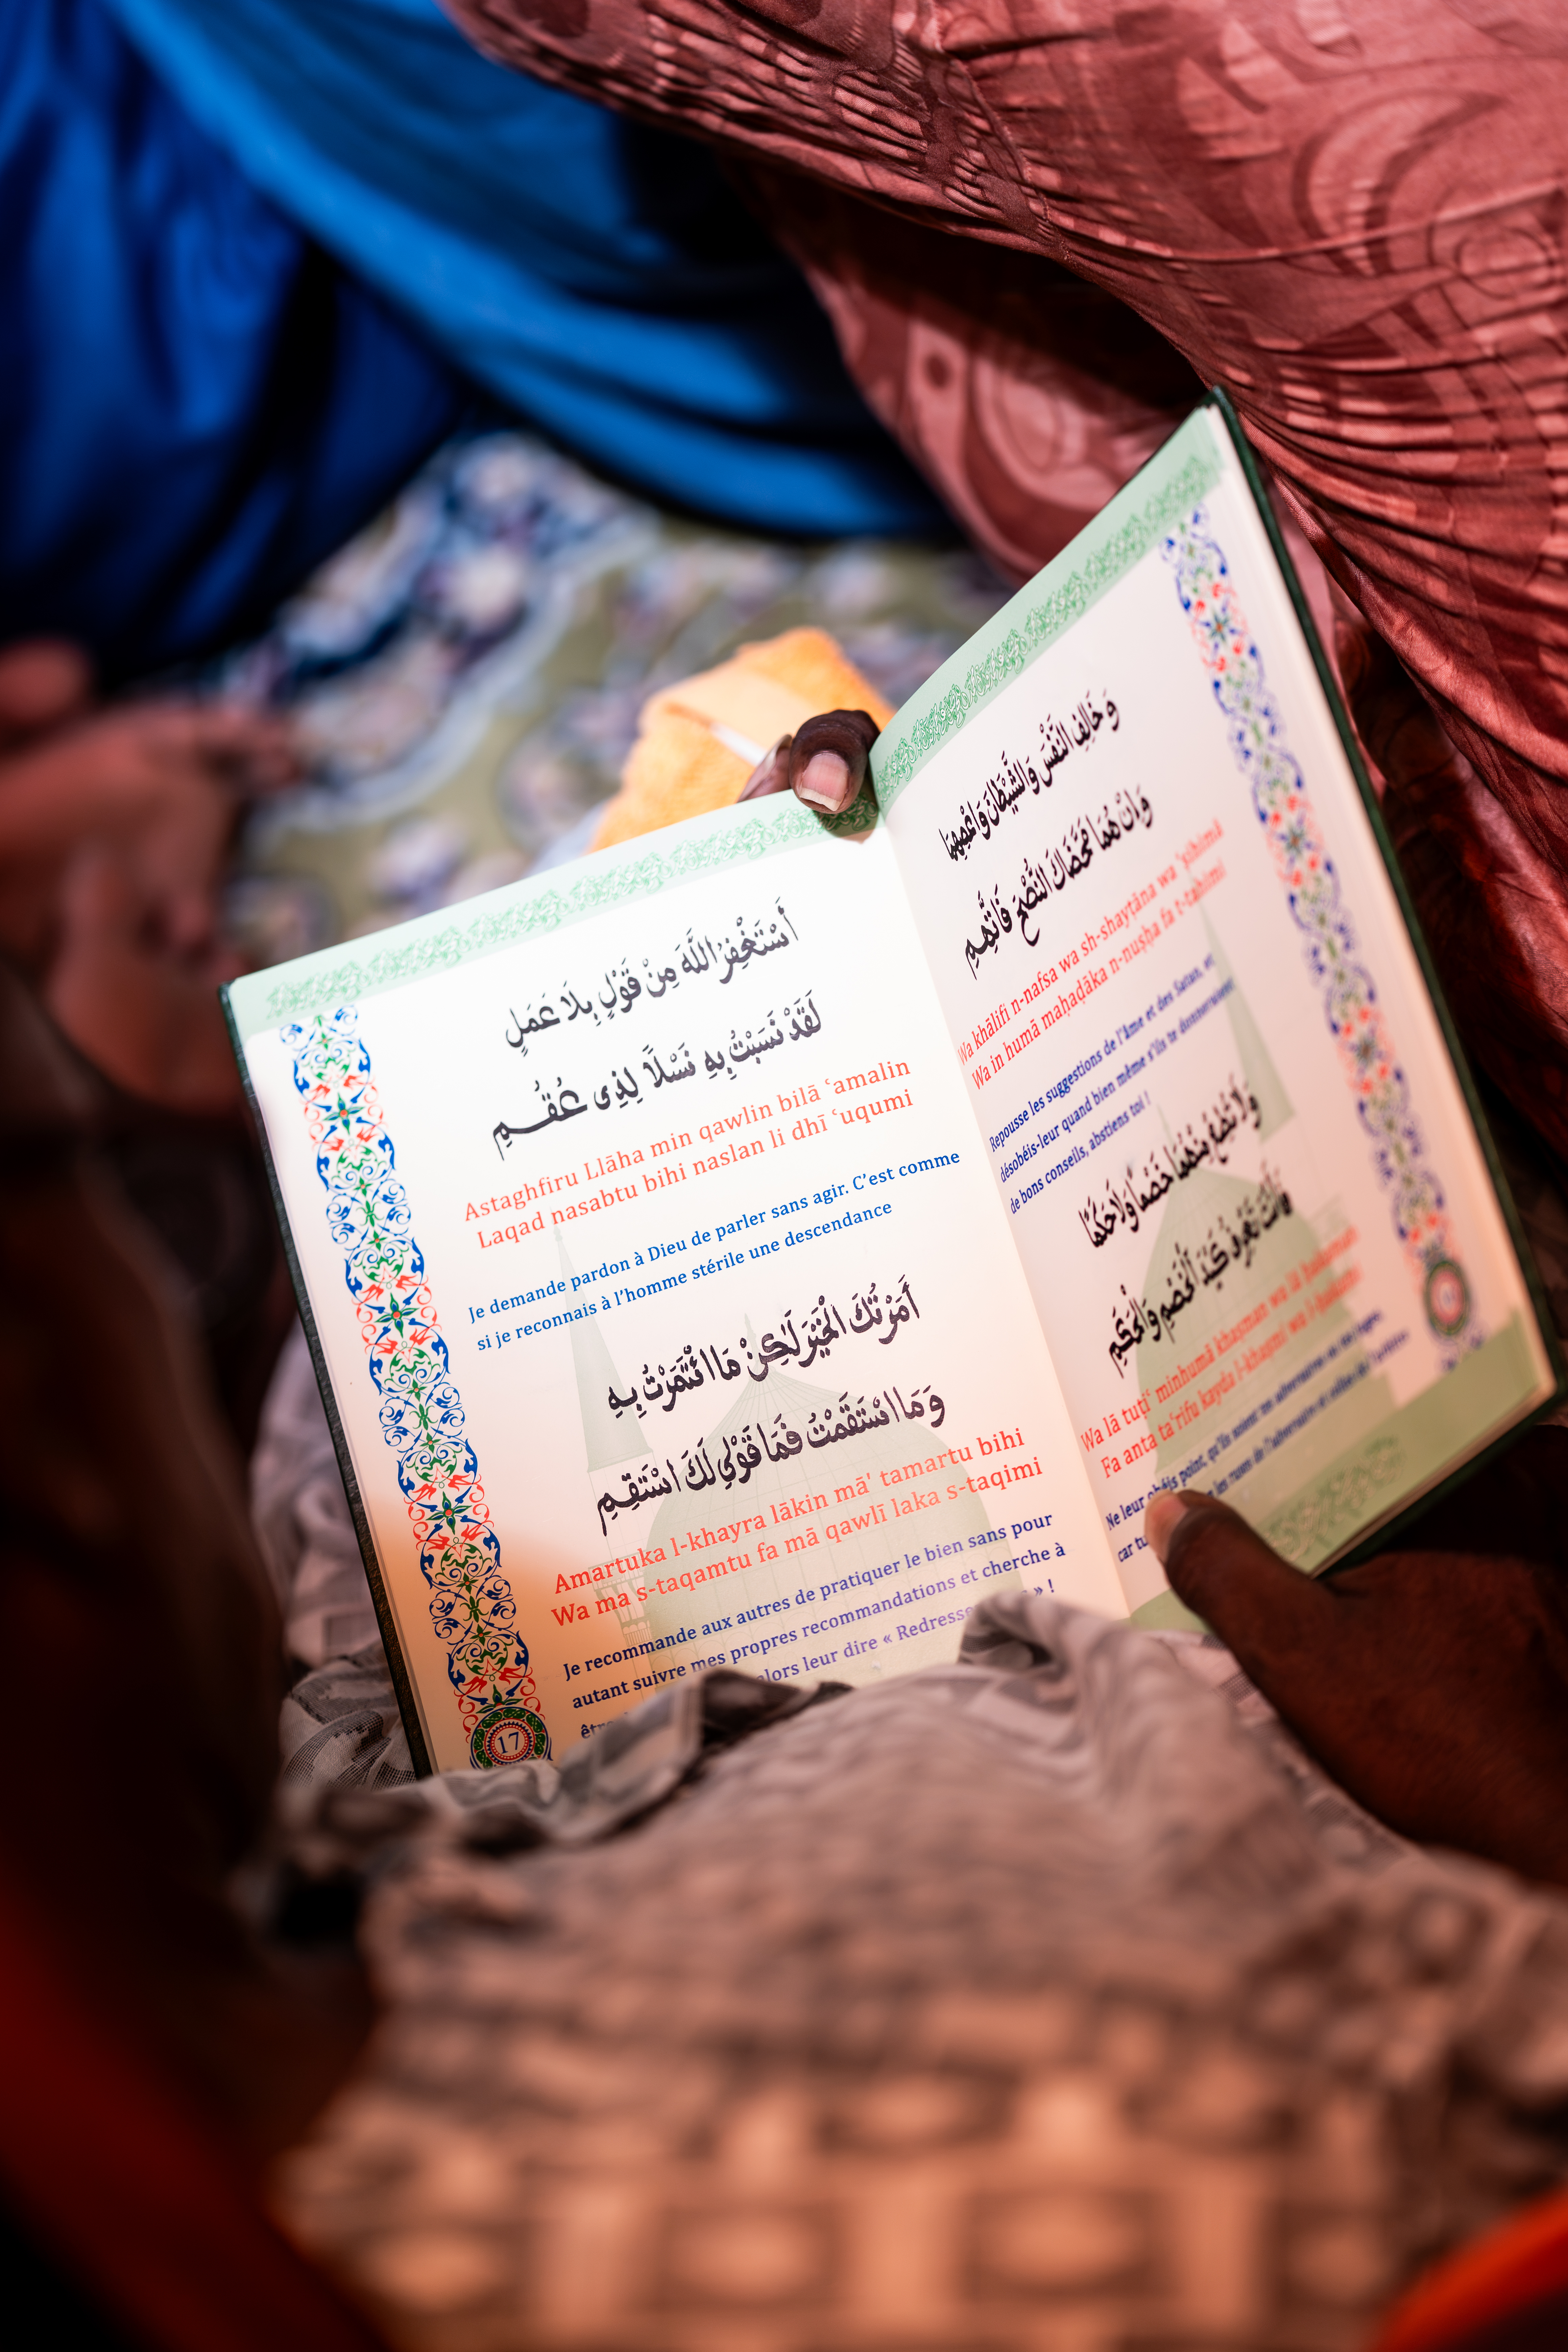 وَ خَالِفِ النَّفْسَ وَالشَّيْطَانَ وَاعْصِهِمَا
وَاِنْ هُمَا مَحَّضَاكَ النُّصْحَ فَاتَّهِمِ
Wa khālifi n-nafsa wa sh-shayṭāna wa ʿṣihimā
Wa in humā maḥaḍāka n-nuṣḥa fa t-tahimi
Repousse les suggestions de l'âme et des Satan, et
désobéis-leur quand bien même s'ils te donneraient
de bons conseils, abstiens toi !
وَلَا تُطِعْ مِنْهُمَا خَصْمًا وَلَا حَكَمًا
فَاَنْتَ تَعْرِفُ كَيْدَ الْخَصْمِ وَالْحَكَمِ
Wa lā tuṭiʿ minhumā khaṣman wa lā ḥakaman
Fa anta taʿrifu kayda l-khaṣmi wa l-ḥakami
Ne leur obéis point, qu'ils soient un adversaire ou un
car tu les ruses de l'adversaire et celles de
أَسْتَغْفِرُ اللَّهَ مِنْ قَوْلٍ بِلَا عَمَلٍ
لَقَدْ نَسَبْتُ بِهِ نَسْلًا لِذِى عُقُمِ
Astaghfiru Llāha min qawlin bilā ʿamalin
Laqad nasabtu bihi naslan li dhī ʿuqumi
Je demande pardon à Dieu de parler sans agir. C'est comme
si je reconnais à l'homme stérile une descendance
أَمَرْتُكَ الْخَيْرَ لَكِنْ مَا ائْتَمَرْتُ بِهِ
وَمَا اسْتَقَمْتُ فَمَا قَوْلِي لَكَ اسْتَقِمِ
Amartuka l-khayra lākin mā' tamartu bihi
Wa ma s-taqamtu fa mā qawlī laka s-taqimi
Je recommande aux autres de pratiquer le bien sans pour
autant suivre mes propres recommandations et cherche à
alors leur dire « » !
17